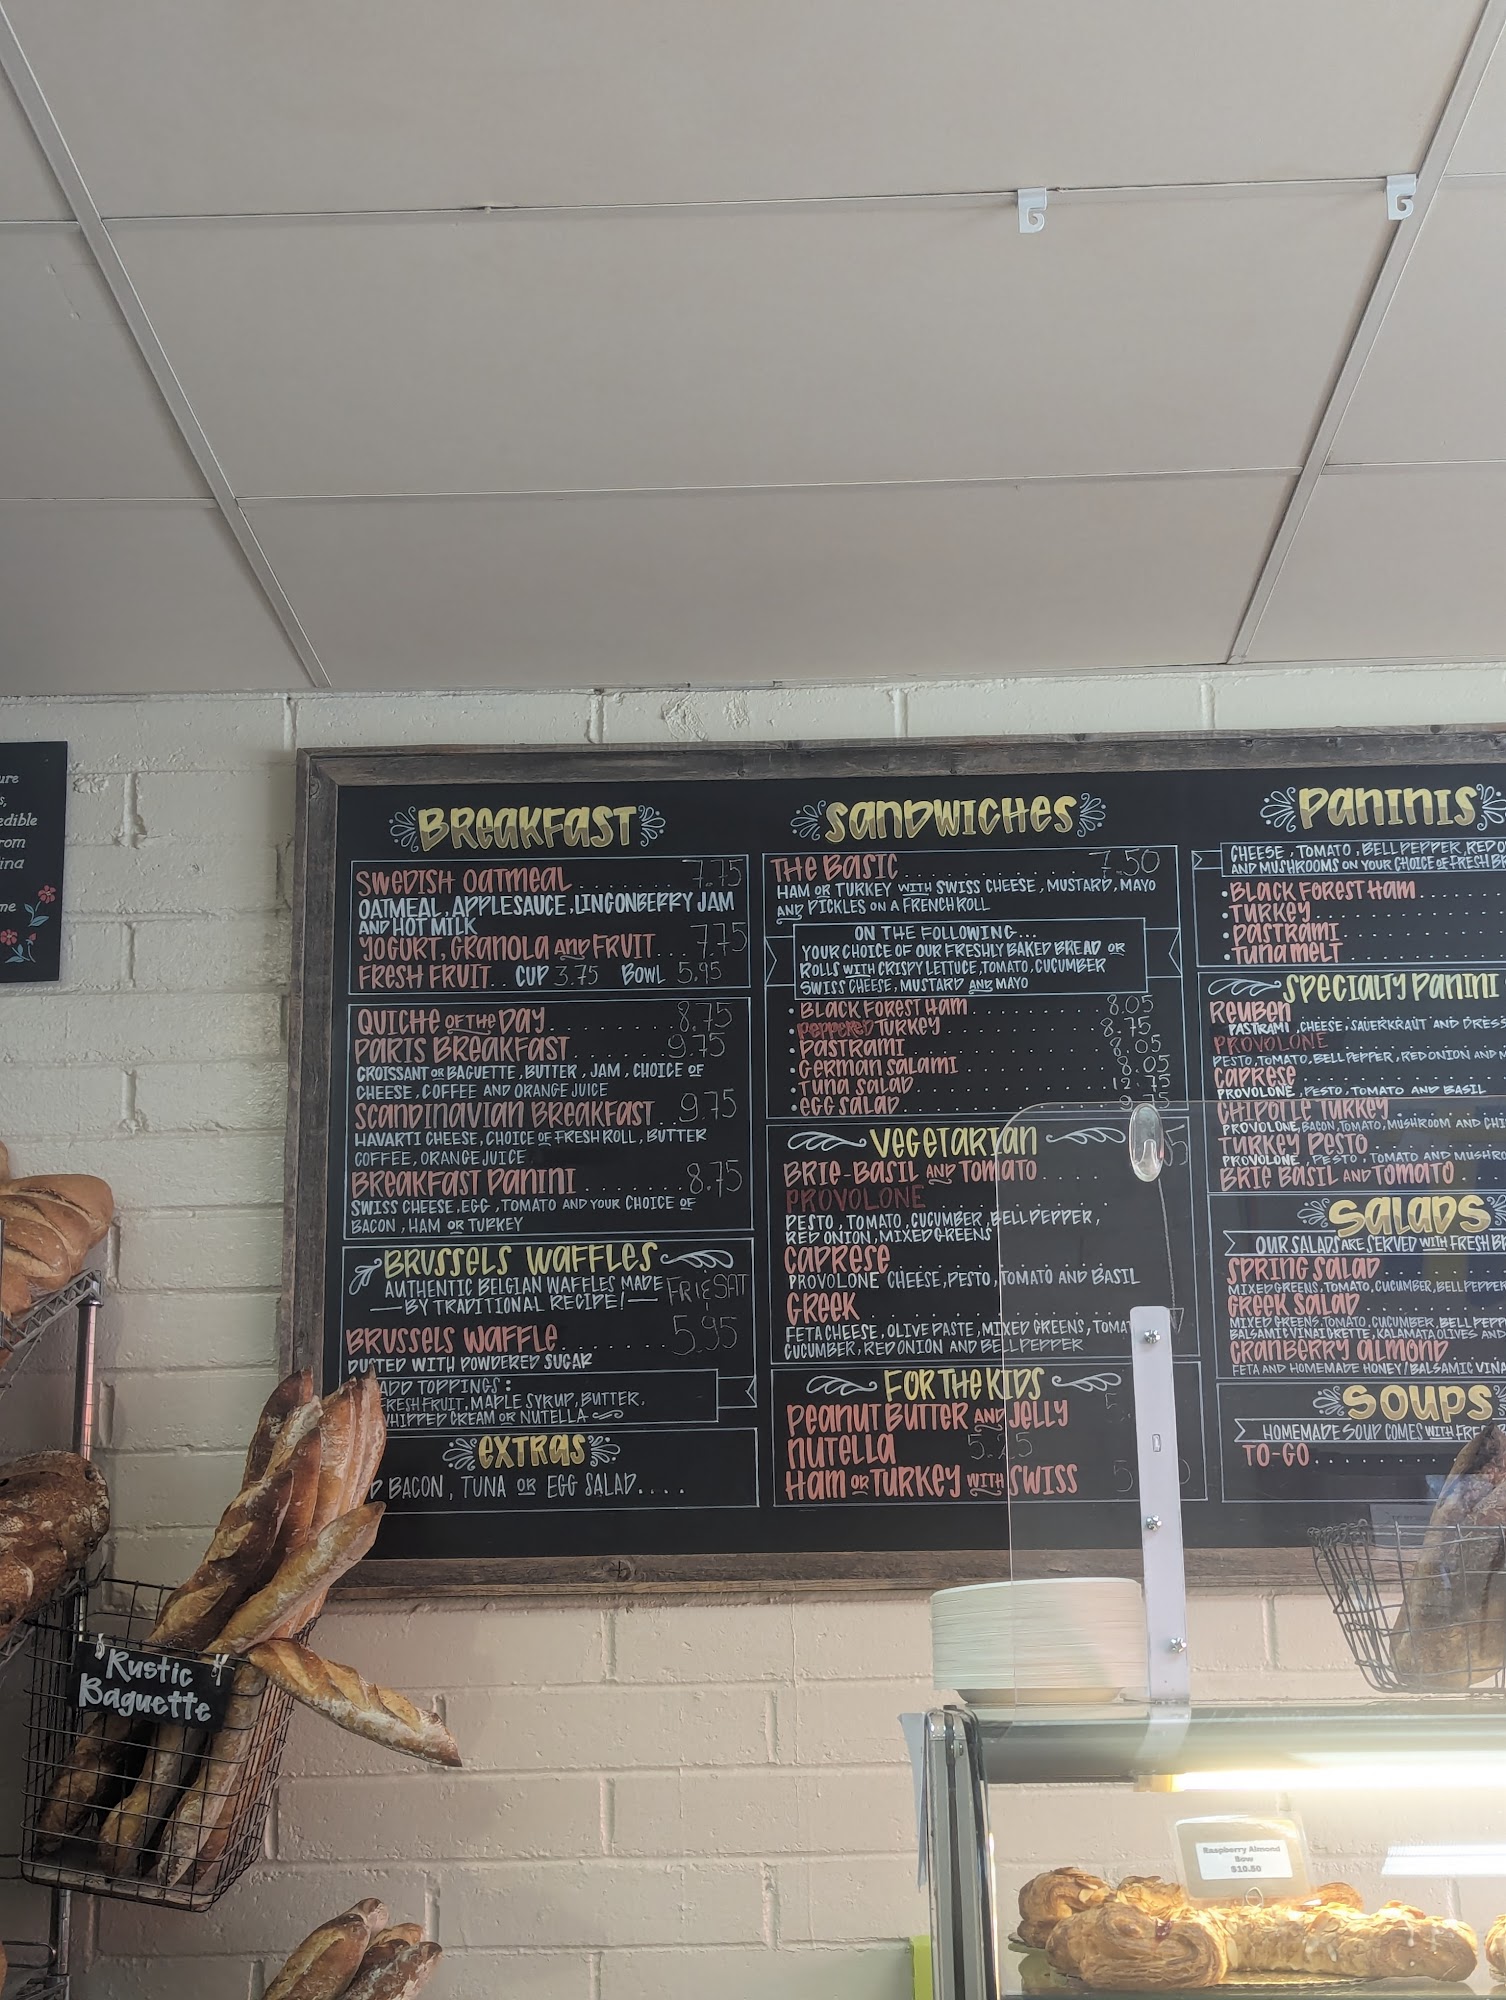 ure
s,
edible
rom
ina
me
BREAKFAST
SWEDISH OATMEAL . . . . . . . 7.75
OATMEAL, APPLESAUCE, LINGONBERRY JAM
AND HOT MILK
YOGURT, GRANOLA AND FRUIT . . . 7.75
FRESH FRUIT . . CUP 3.75 BOWL 5.95
QUICHE OF THE DAY . . . . . . . 8.75
PARIS BREAKFAST . . . . . . 9.75
CROISSANT OR BAGUETTE, BUTTER, JAM, CHOICE OF
CHEESE, COFFEE AND ORANGE JUICE
SCANDINAVIAN BREAKFAST . . 9.75
HAVARTI CHEESE, CHOICE OF FRESH ROLL, BUTTER
COFFEE, ORANGE JUICE
BREAKFAST PANINI . . . . . . 8.75
SWISS CHEESE, EGG, TOMATO AND YOUR CHOICE OF
BACON, HAM OR TURKEY
BRUSSELS WAFFLES
AUTHENTIC BELGIAN WAFFLES MADE
BY TRADITIONAL RECIPE!
FRI & SAT
BRUSSELS WAFFLE . . . . . . 5.95
DUSTED WITH POWDERED SUGAR
ADD TOPPINGS:
FRESH FRUIT, MAPLE SYRUP, BUTTER,
WHIPPED CREAM OR NUTELLA
EXTRAS
D BACON, TUNA OR EGG SALAD . . . .
SANDWICHES
THE BASIC . . . . . . . . . 7.50
HAM OR TURKEY WITH SWISS CHEESE, MUSTARD, MAYO
AND PICKLES ON A FRENCH ROLL
ON THE FOLLOWING...
YOUR CHOICE OF OUR FRESHLY BAKED BREAD OR
ROLLS WITH CRISPY LETTUCE, TOMATO, CUCUMBER
SWISS CHEESE, MUSTARD AND MAYO
• BLACK FOREST HAM . . . . . . . 8.05
• PEPPERED TURKEY . . . . . . . 8.75
• PASTRAMI . . . . . . . . . 8.05
• GERMAN SALAMI . . . . . . . 8.05
• TUNA SALAD . . . . . . . . 12.75
• EGG SALAD . . . . . . . . 9.75
VEGETARIAN
BRIE-BASIL AND TOMATO . . . .
PROVOLONE . . . . . . . .
PESTO, TOMATO, CUCUMBER, BELL PEPPER,
RED ONION, MIXED GREENS
CAPRESE . . . . . . . .
PROVOLONE CHEESE, PESTO, TOMATO AND BASIL
GREEK . . . . . . . .
FETA CHEESE, OLIVE PASTE, MIXED GREENS, TOMAT
CUCUMBER, RED ONION AND BELL PEPPER
FOR THE KIDS
PEANUT BUTTER AND JELLY
NUTELLA 5.25
HAM OR TURKEY WITH SWISS
PANINIS
CHEESE, TOMATO, BELL PEPPER, RED O
AND MUSHROOMS ON YOUR CHOICE OF FRESH B
• BLACK FOREST HAM . . . .
• TURKEY . . . . . . . .
• PASTRAMI . . . . . . .
• TUNA MELT . . . . . . .
SPECIALTY PANINI
REUBEN
PASTRAMI, CHEESE, SAUERKRAUT AND DRESS
PROVOLONE
PESTO, TOMATO, BELL PEPPER, RED ONION AND M
CAPRESE . . . . . . . .
PROVOLONE, PESTO, TOMATO AND BASIL
CHIPOTLE TURKEY
PROVOLONE, BACON, TOMATO, MUSHROOM AND CHI
TURKEY PESTO . . . . . .
PROVOLONE, PESTO, TOMATO AND MUSHRO
BRIE BASIL AND TOMATO . .
SALADS
OUR SALADS ARE SERVED WITH FRESH B
SPRING SALAD . . . . . .
MIXED GREENS, TOMATO, CUCUMBER, BELL PEPPER
GREEK SALAD . . . . . .
MIXED GREENS, TOMATO, CUCUMBER, BELL PEPPE
BALSAMIC VINAIGRETTE, KALAMATA OLIVES AND
CRANBERRY ALMOND . . .
FETA AND HOMEMADE HONEY/BALSAMIC VINA
SOUPS
HOMEMADE SOUP COMES WITH FRE
TO-GO . . . . . . . .
Rustic
Baguette
Raspberry Almond
Bow
$10.50